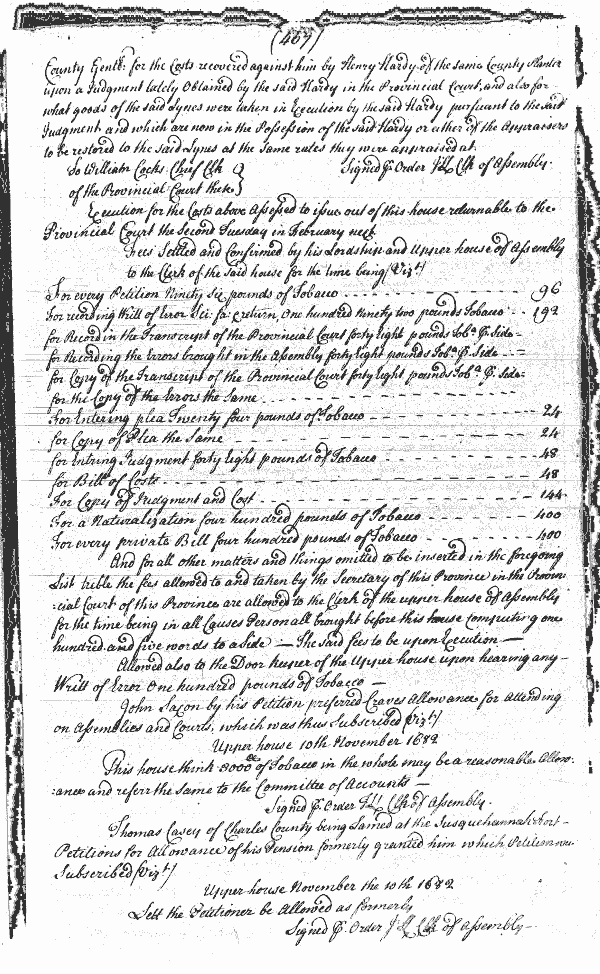 (489)
County Gent: for the Costs recovered against him by Henry Hardy of the same County Planter
upon a Judgment lately Obtained by the said Hardy in the Provincial Court, and also for
what goods of the said Lynes were taken in Execution by the said Hardy pursuant to the said
Judgment and which are now in the Possession of the said Hardy or either of the Appraisers
to be restored to the said Lynes at the same rates they were appraised at.
To William Cocks Chief Clk Signed p. Order Clk of Assembly.
of the Provincial Court these
Execution for the Costs above Assessed to issue out of this house returnable to the
Provincial Court the Second Tuesday in February next
Fees Settled and Confirmed by his Lordship and Upper house of Assembly
to the Clerk of the said house for the time being (Vizt)
For every Petition Ninety Six pounds of Tobacco 96
For recording Writt of Error Sci: fa: & return, One hundred Ninety two pounds Tobacco 192
for Record in the Transcript of the Provincial Court forty Eight pounds Toba. p. Side
for Recording the Errors brought in the Assembly forty Eight pounds Toba. p. Side
for Copy of the Transcript of the Provincial Court forty Eight pounds Toba. p. Side
for the Copy of the Errors the Same
For Entering plea Twenty four pounds of Tobacco 24
for Copy of Plea the Same 24
for Entring Judgment forty Eight pounds of Tobacco 48
for Bill of Costs 48
For Copy of Judgment and Cost 144
For a Naturalization four hundred pounds of Tobacco 400
For every private Bill four hundred pounds of Tobacco 400
And for all other matters and things omitted to be inserted in the foregoing
List trible the fees allowed to and taken by the Secretary of this Province in the Provin-
:cial Court of this Province are allowed to the Clerk of the upper house of Assembly
for the time being in all Causes Personall brought before this house computing one
hundred and five words to a Side — The said fees to be upon Execution —
Allowed also to the Door keeper of the Upper house upon hearing any —
Writt of Error One hundred pounds of Tobacco —
John Lacon by his Petition preferred Craves Allowance for Attending
on Assemblies and Courts, which was thus Subscribed (Vizt)
Upper house 10th November 1682
This house think 3000 of Tobacco in the whole may be a reasonable Allow-
:ance and referr the same to the Committee of Accounts —
Signed p. Order Clk of Assembly.
Thomas Casey of Charles County being Lamed at the Susquehannah Fort —
Petitions for Allowance of his Pension formerly granted him which Petition was
Subscribed (Vizt)
Upper house November the 10th 1682
Lett the Petitioner be Allowed as formerly
Signed p. Order Clk of Assembly —